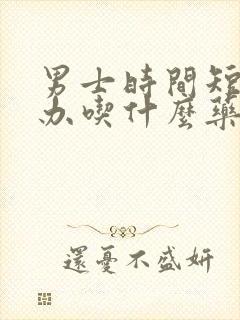 男士時間短
办喫什麽藥
還憂不盛妍